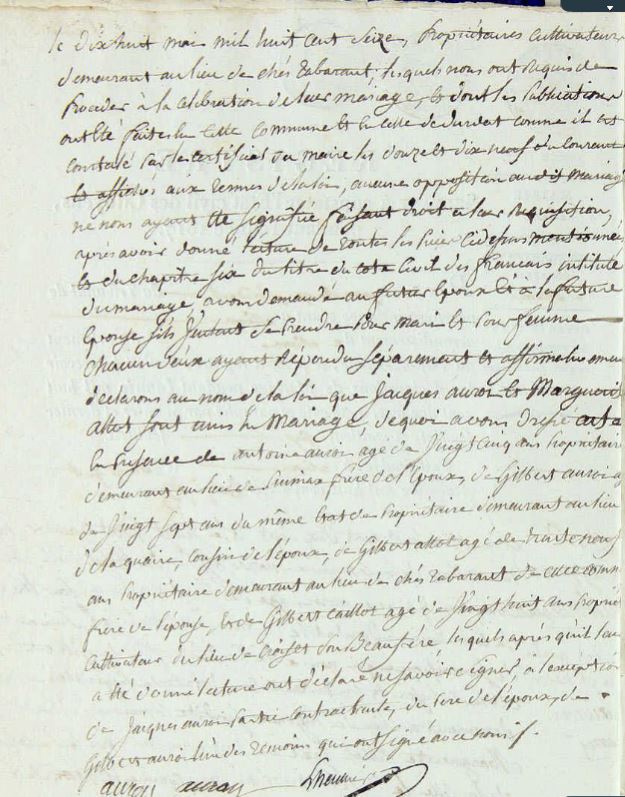 le dix huit mai mil huit cent seize, propriétaires cultivateurs
demeurant au lieu de chés tabarant, lesquels nous ont requis de
proceder à la célébration de leur mariage, et dont les publications
ont été faites en cette commune et en celle de durdat comme il est
constaté par le certificat du maire les douze et dix neuf du courant
et affiches aux termes de la loi, aucune opposition au dit mariage
ne nous ayant été signifié faisant droit à leur requisition,
après avoir donné lecture de toutes les pieces ci dessus mentionnées
et du chapitre six du titre du code civil des francais intitulé
du mariage avons demandé au futur époux et à la future
épouse s'ils veulent se prendre pour mari et pour femme
chacun d'eux ayant repondu séparement et affirmativement
déclarons au nom de la loi que jacques auroi et Marguerit
allot sont unis en Mariage, de quoi avons dressé acte
en presence de antoine auroi agé de vingt cinq ans propriétaire
demeurant au lieu de frere de l'époux, de Gilbert auroi a
de vingt sept ans du même etat de propriétaire demeurant au lieu
de la cousin de l'époux, de Gilbert allot agé de trente neuf
ans propriétaire demeurant au lieu de chés tabarant de cette comm
frere de l'épouse, et de Gilbert caillot agé de vingt huit ans propriét
cultivateur du lieu de Beaufére, lesquels après qu'il leur
a été donné lecture ont déclaré ne savoir signer, à l'exception
de jacques auroi partie contractante, du pere de l'époux, de
Gilbert auroi l'un des temoins qui ont signé avec nous /.
auroy auroy